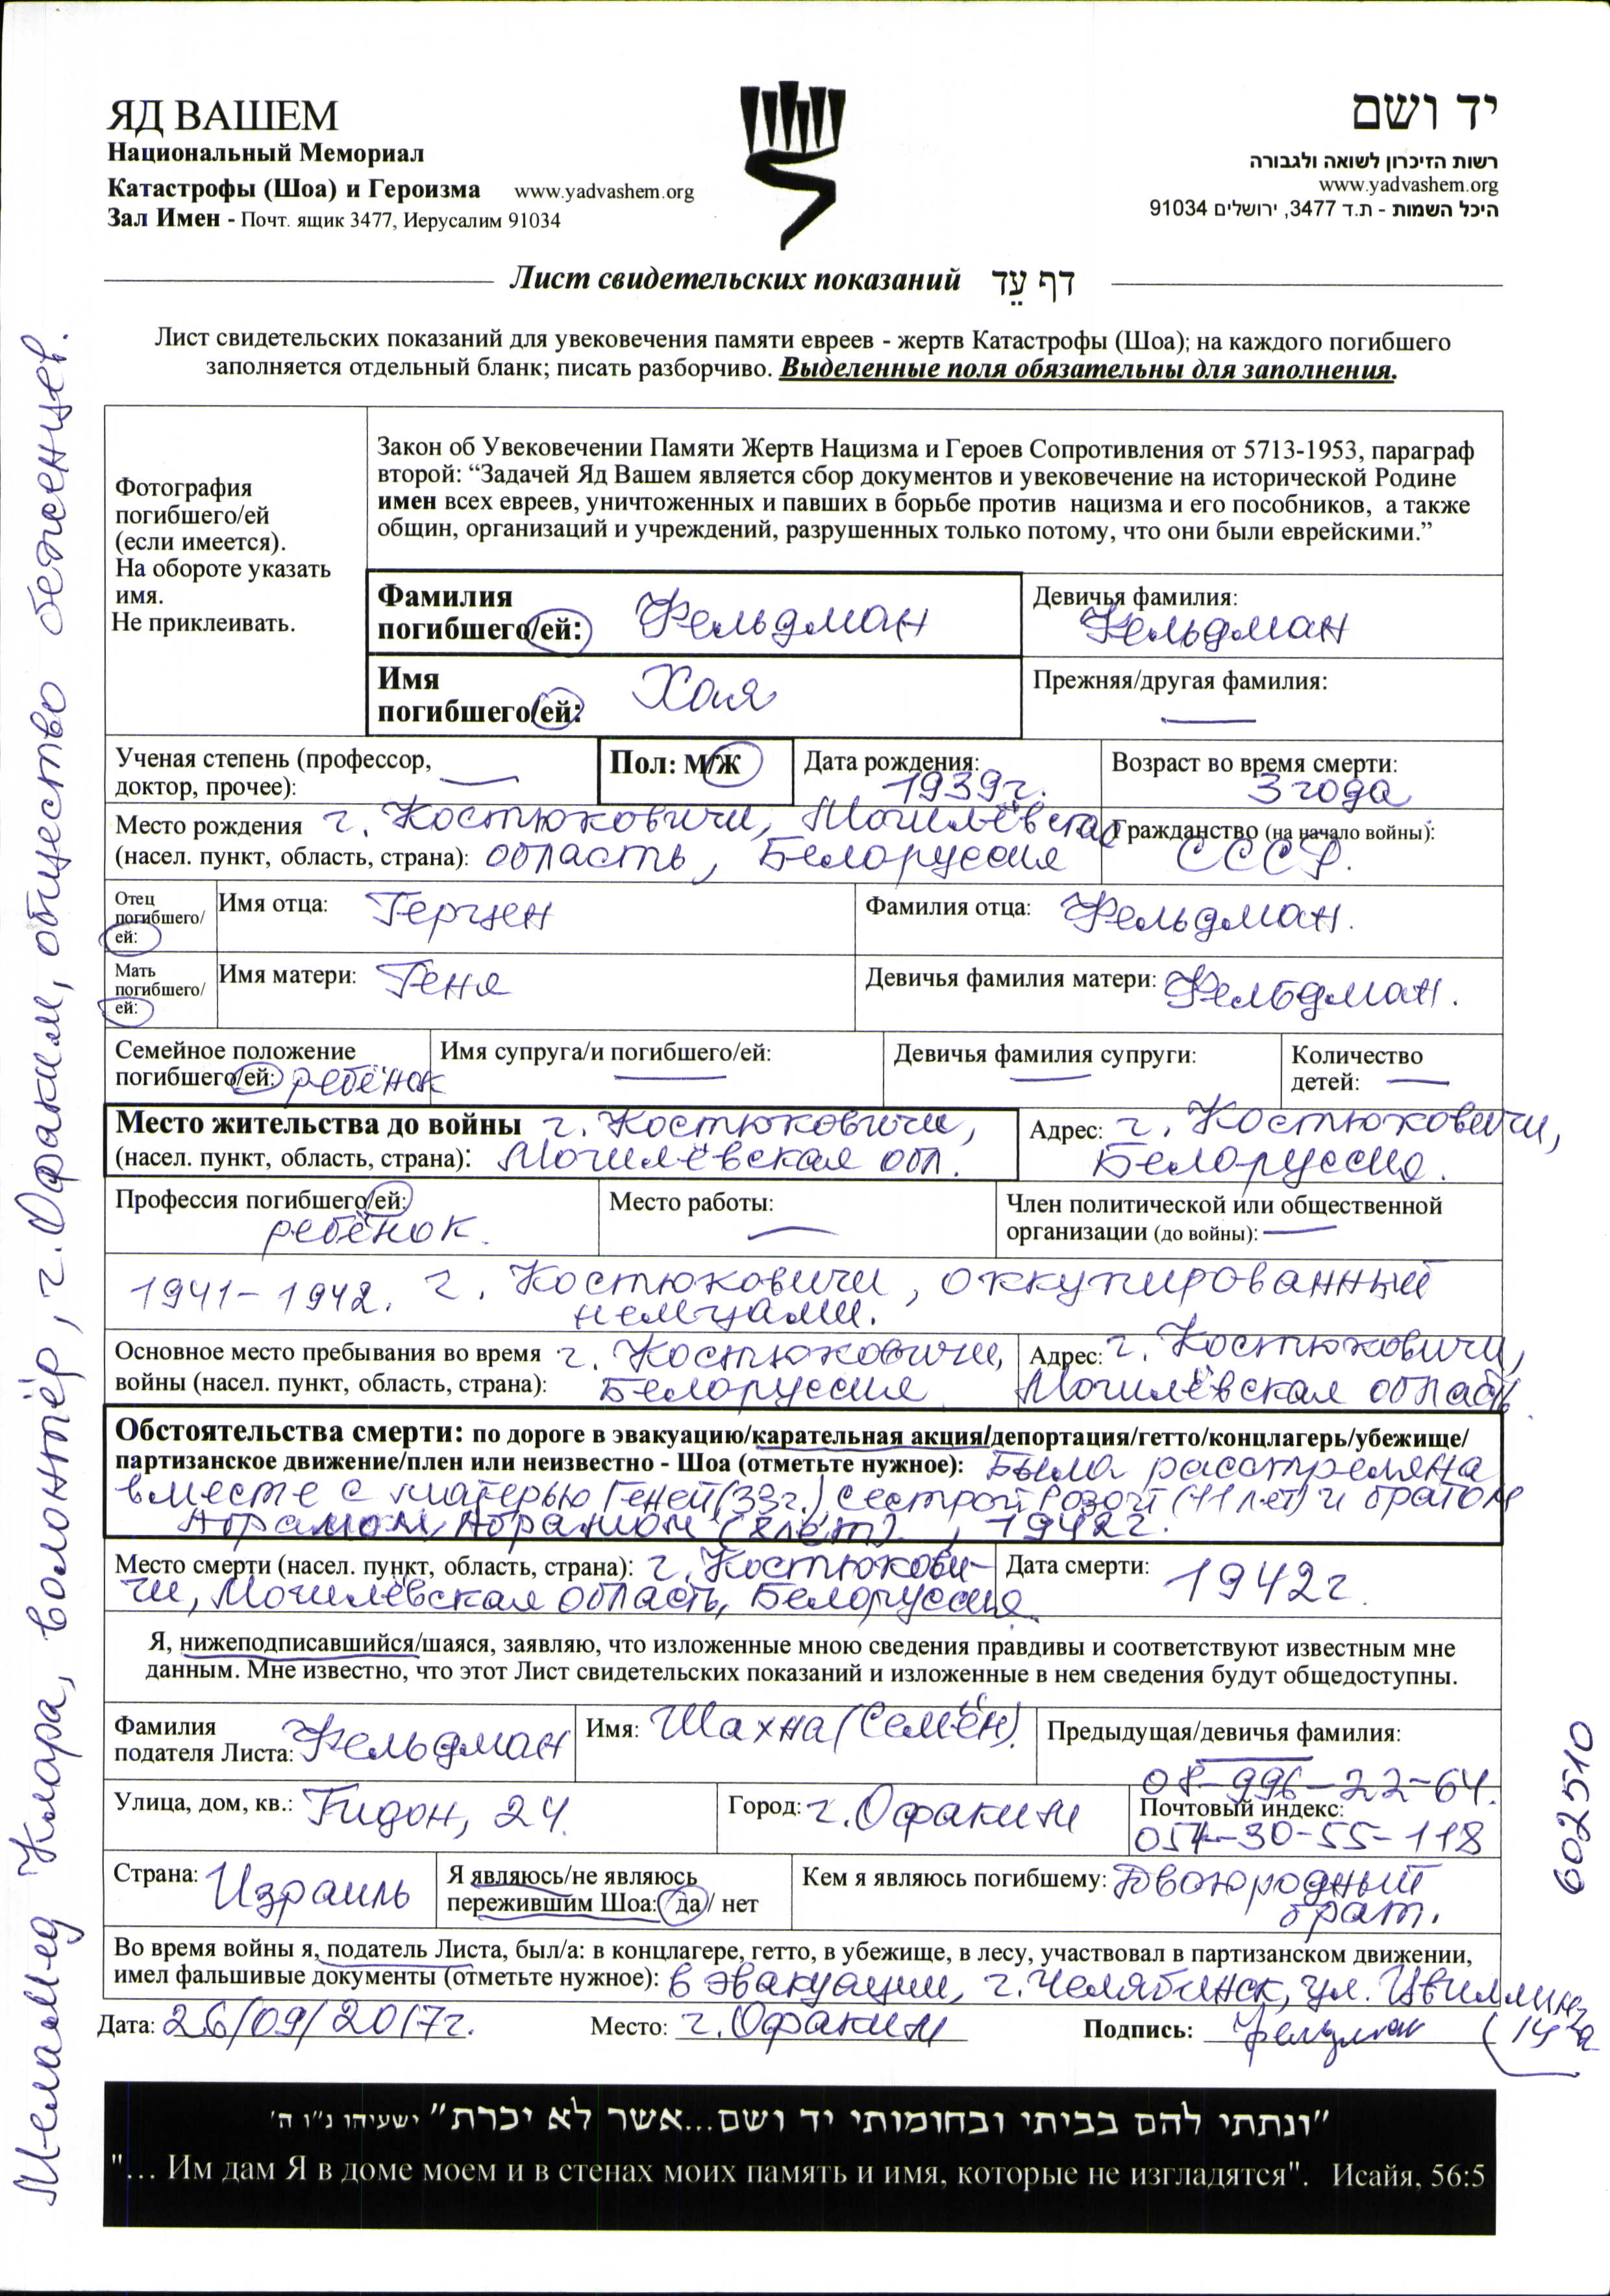 ЯД ВАШЕМ
Национальный Мемориал
Катастрофы (Шоа) и Героизма www.yadvashem.org
Зал Имен - Почт. ящик 3477, Иерусалим 91034
יד ושם
רשות הזיכרון לשואה ולגבורה
www.yadvashem.org
היכל השמות - ת.ד 3477, ירושלים 91034
Лист свидетельских показаний דף עֵד
Лист свидетельских показаний для увековечения памяти евреев - жертв Катастрофы (Шоа); на каждого погибшего
заполняется отдельный бланк; писать разборчиво. Выделенные поля обязательны для заполнения.
Фотография
погибшего/ей
(если имеется).
На обороте указать
имя.
Не приклеивать.
Закон об Увековечении Памяти Жертв Нацизма и Героев Сопротивления от 5713-1953, параграф
второй: “Задачей Яд Вашем является сбор документов и увековечение на исторической Родине
имен всех евреев, уничтоженных и павших в борьбе против нацизма и его пособников, а также
общин, организаций и учреждений, разрушенных только потому, что они были еврейскими.”
Фамилия
погибшего/ей: Фельдман
Девичья фамилия:
Фельдман
Имя
погибшего/ей: Хая
Прежняя/другая фамилия: —
Ученая степень (профессор,
доктор, прочее): —
Пол: М/Ж
Дата рождения:
1939г.
Возраст во время смерти:
3 года
Место рождения г. Костюковичи, Могилёвская
(насел. пункт, область, страна): область, Белоруссия
Гражданство (на начало войны):
СССР.
Отец
погибшего/
ей:
Имя отца: Герцен
Фамилия отца: Фельдман.
Мать
погибшего/
ей:
Имя матери: Геня
Девичья фамилия матери: Фельдман.
Семейное положение
погибшего/ей: ребёнок
Имя супруга/и погибшего/ей: —
Девичья фамилия супруги: —
Количество
детей: —
Место жительства до войны г. Костюковичи,
(насел. пункт, область, страна): Могилёвская обл.
Адрес: г. Костюковичи,
Белоруссия.
Профессия погибшего/ей:
ребёнок.
Место работы: —
Член политической или общественной
организации (до войны): —
1941-1942. г. Костюковичи, оккупированный
немцами.
Основное место пребывания во время г. Костюковичи,
войны (насел. пункт, область, страна): Белоруссия
Адрес: г. Костюковичи,
Могилёвская область.
Обстоятельства смерти: по дороге в эвакуацию/карательная акция/депортация/гетто/концлагерь/убежище/
партизанское движение/плен или неизвестно - Шоа (отметьте нужное): Была расстреляна
вместе с матерью Геней (33г.), сестрой Розой (11 лет) и братом
Абрамом, 1942г.
Место смерти (насел. пункт, область, страна): г. Костюкови-
чи, Могилёвская область, Белоруссия.
Дата смерти: 1942г.
Я, нижеподписавшийся/шаяся, заявляю, что изложенные мною сведения правдивы и соответствуют известным мне
данным. Мне известно, что этот Лист свидетельских показаний и изложенные в нем сведения будут общедоступны.
Фамилия
подателя Листа: Фельдман
Имя: Шахна (Семён).
Предыдущая/девичья фамилия: —
08-996-22-64.
Улица, дом, кв.: Гидон, 24.
Город: г. Офаким
Почтовый индекс:
054-30-55-118
Страна: Израиль
Я являюсь/не являюсь
пережившим Шоа: да / нет
Кем я являюсь погибшему: Двоюродный
брат.
Во время войны я, податель Листа, был/а: в концлагере, гетто, в убежище, в лесу, участвовал в партизанском движении,
имел фальшивые документы (отметьте нужное): в эвакуации, г. Челябинск, ул. Цвиллинга
Дата: 26/09/2017г. Место: г. Офаким Подпись: Фельдман
"ונתתי להם בביתי ובחומותי יד ושם...אשר לא יכרת" ישעיהו נ"ו ה'
"... Им дам Я в доме моем и в стенах моих память и имя, которые не изгладятся". Исайя, 56:5
Меламед Клара, волонтёр, г. Офаким, общество беженцев.
602510